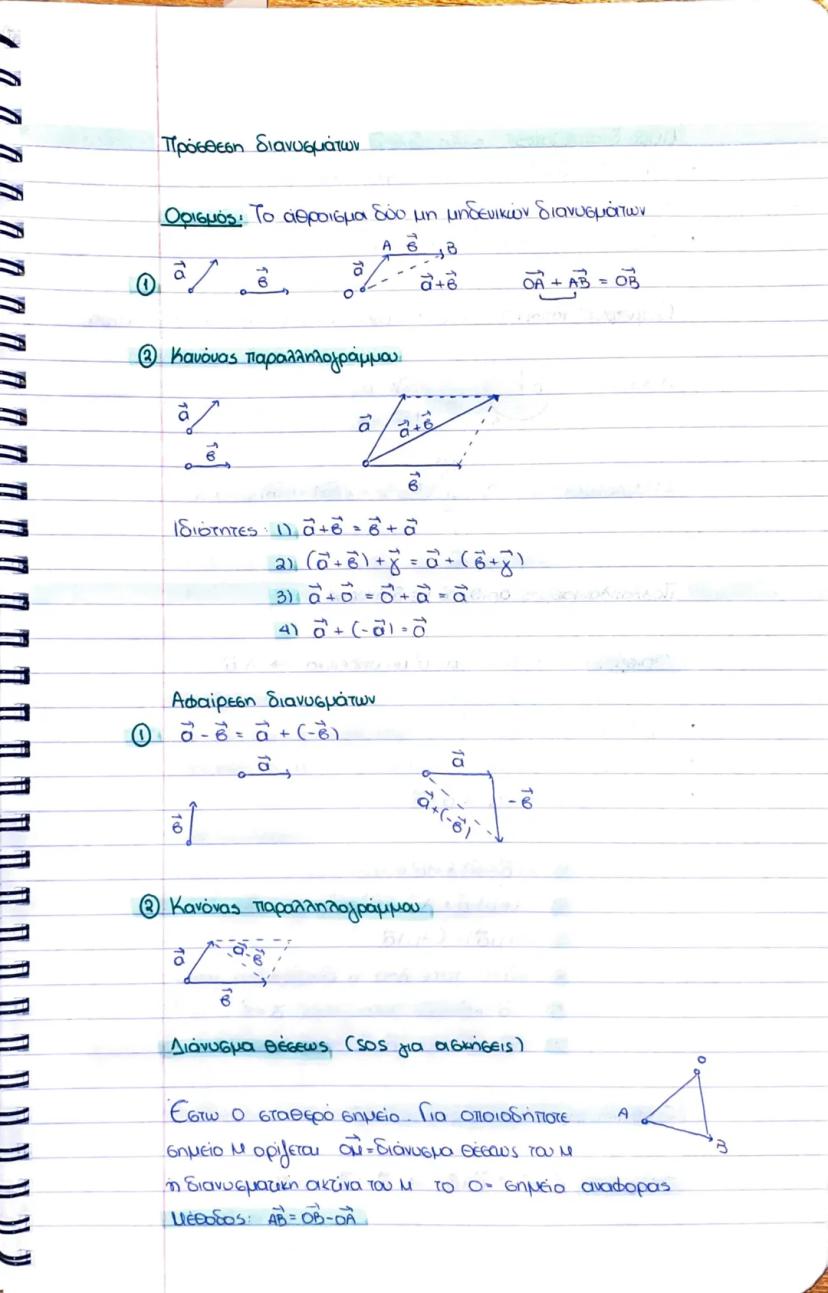 Πρόσθεση διανυσμάτων
Ορισμός: Το άθροισμα δύο μη μηδενικών διανυσμάτων
① α⃗ β⃗ Ο α⃗ Α β⃗ Β α⃗+β⃗ ΟΑ⃗ + ΑΒ⃗ = ΟΒ⃗
② Κανόνας παραλληλογράμμου
α⃗ β⃗ α⃗ α⃗+β⃗ β⃗
Ιδιότητες: 1) α⃗+β⃗ = β⃗+α⃗
2) (α⃗+β⃗)+γ⃗ = α⃗+(β⃗+γ⃗)
3) α⃗+0⃗ = 0⃗+α⃗ = α⃗
4) α⃗+(-α⃗) = 0⃗
Αφαίρεση διανυσμάτων
① α⃗ - β⃗ = α⃗ + (-β⃗)
α⃗ α⃗
β⃗ α⃗+(-β⃗) -β⃗
② Κανόνας παραλληλογράμμου
α⃗ α⃗-β⃗
β⃗
Διάνυσμα θέσεως (SOS για ασκήσεις)
Ο
Έστω Ο σταθερό σημείο. Για οποιοδήποτε Α
σημείο Μ ορίζεται ΟΜ⃗ = διάνυσμα θέσεως του Μ Β
η διανυσματική ακτίνα του Μ το Ο = σημείο αναφοράς
Μέθοδος: ΑΒ⃗ = ΟΒ⃗ - ΟΑ⃗